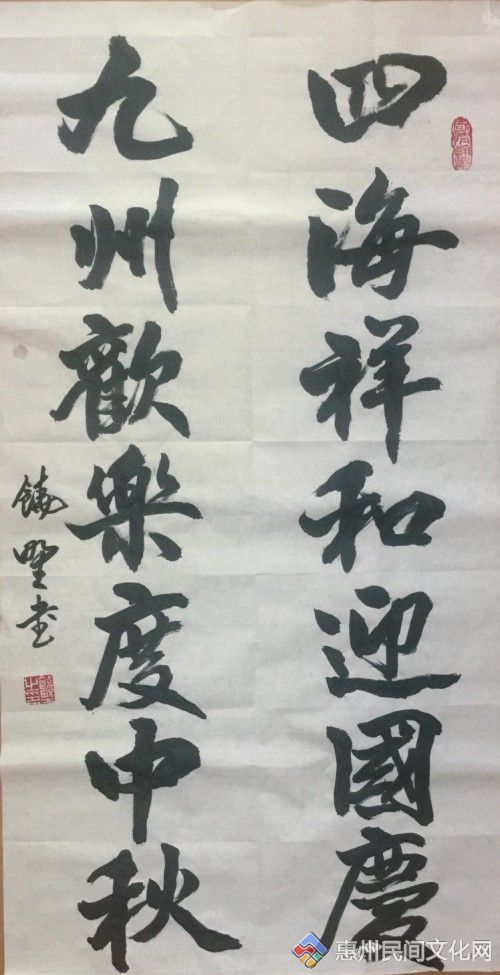 四海祥和迎國慶
九州歡樂度中秋
惠州民间文化网